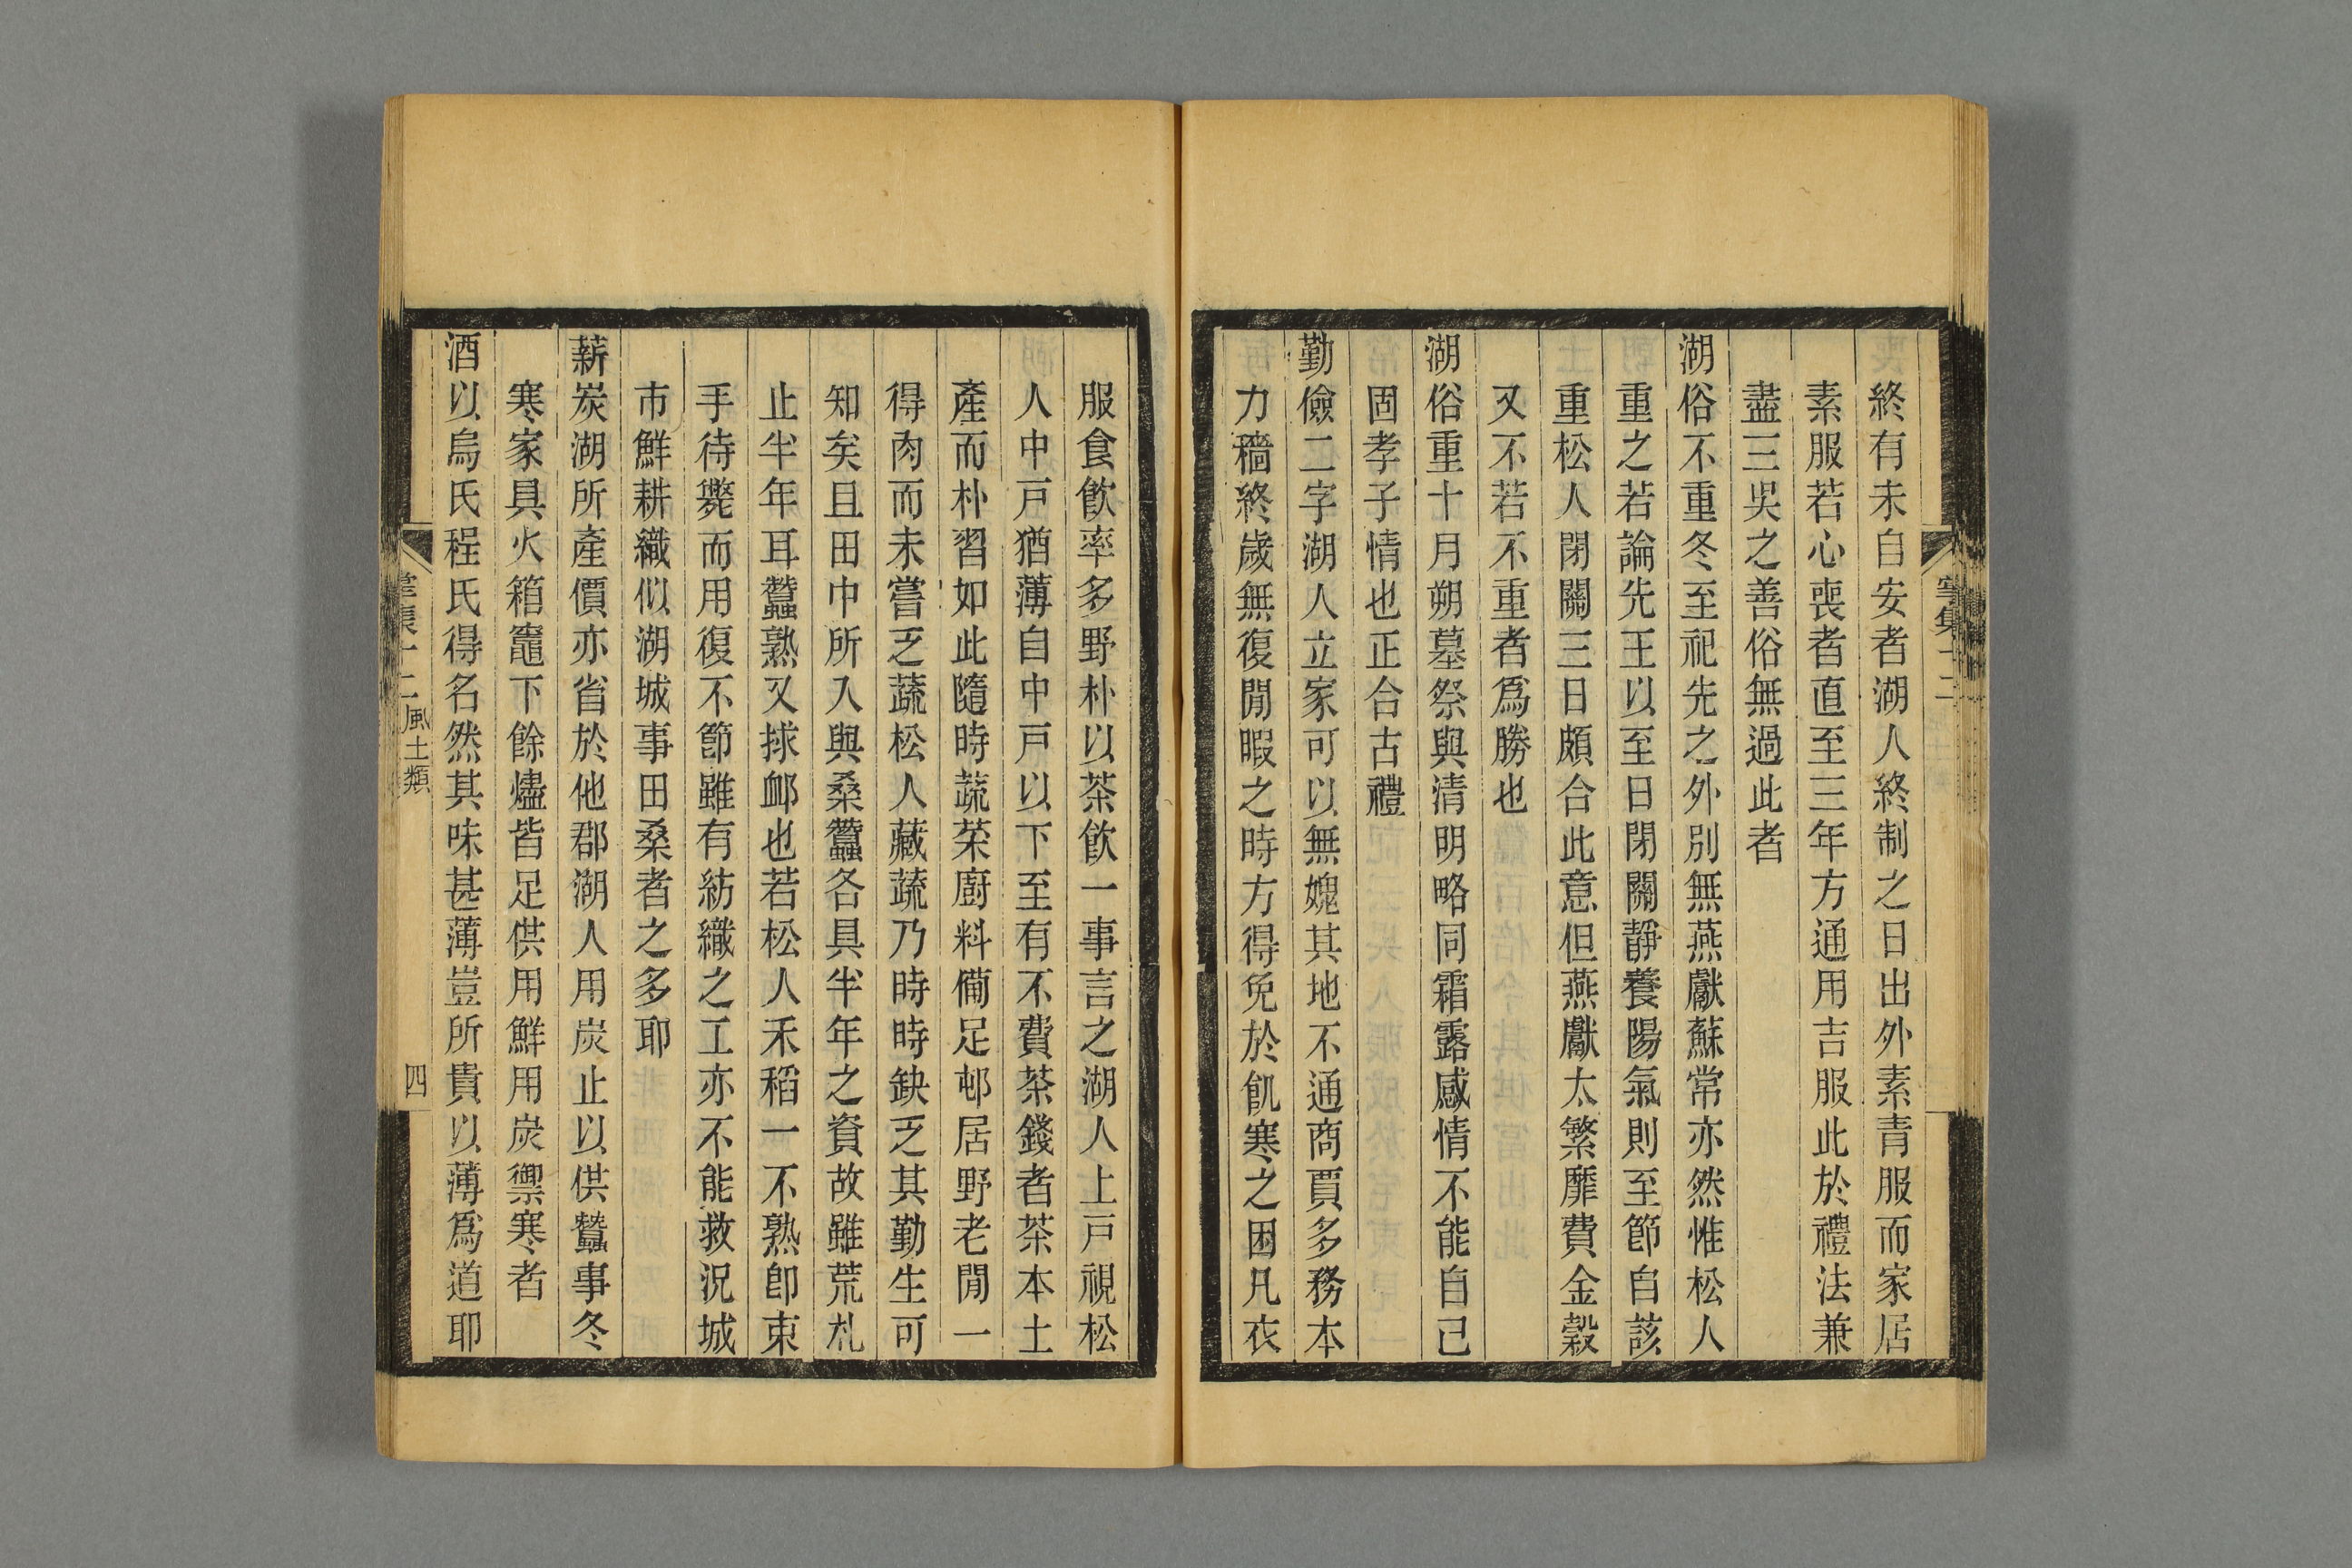 終有未自安者湖人終制之日出外素青服而家居
素服若心喪者直至三年方通用吉服此於禮法兼
盡三吳之善俗無過此者
湖俗不重冬至祀先之外別無燕獻蘇常亦然惟松人
重之若論先王以至日閉關靜養陽氣則至節自該
重松人閉關三日頗合此意但燕獻太繁靡費金穀
又不若不重者爲勝也
湖俗重十月朔墓祭與清明略同霜露感情不能自已
固孝子情也正合古禮
勤儉二字湖人立家可以無媿其地不通商賈多務本
力穡終歲無復閒暇之時方得免於飢寒之困凡衣
服食飲率多野朴以茶飲一事言之湖人上戸視松
人中戸猶薄自中戸以下至有不費茶錢者茶本土
產而朴習如此隨時蔬菜廚料備足邨居野老閒一
得肉而未嘗乏蔬松人藏蔬乃時時缺乏其勤生可
知矣且田中所入與桑蠶各具半年之資故雖荒札
止半年耳蠶熟又拯卹也若松人禾稻一不熟卽束
手待斃而用復不節雖有紡織之工亦不能救況城
市鮮耕織似湖城事田桑者之多耶
薪炭湖所產價亦省於他郡湖人用炭止以供蠶事冬
寒家具火箱竈下餘燼皆足供用鮮用炭禦寒者
酒以烏氏程氏得名然其味甚薄豈所貴以薄爲道耶
掌集十二 風土類
四